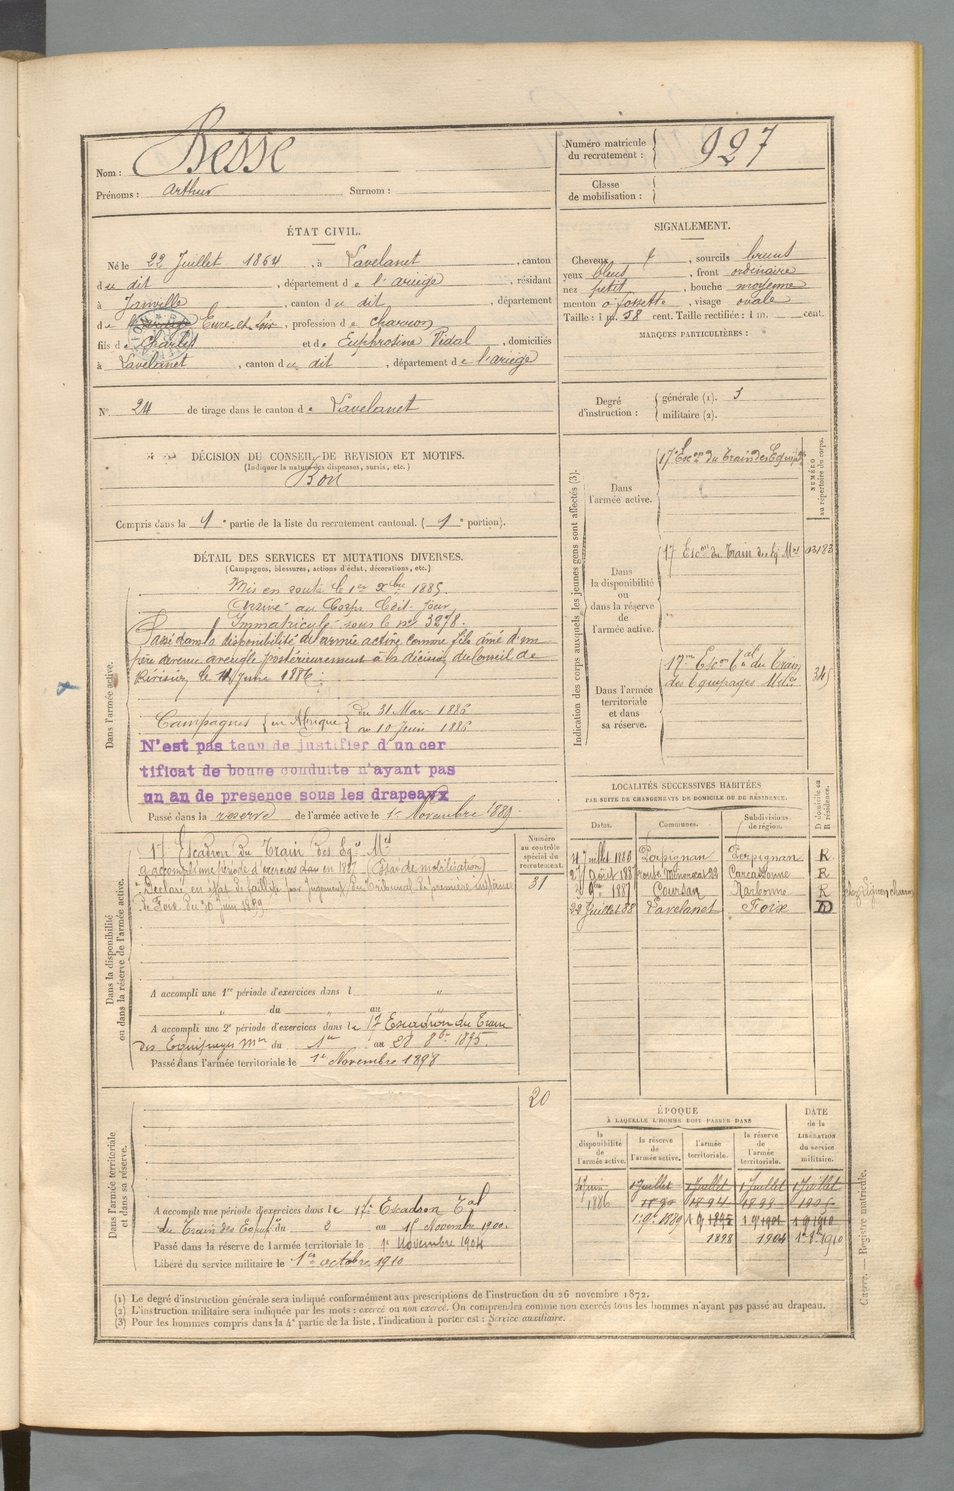 Nom : Besse
Prénoms : Arthur Surnom :
Numéro matricule du recrutement : 927
Classe de mobilisation :
ÉTAT CIVIL.
Né le 22 Juillet 1864, à Lavelanet, canton
du dit, département de l'ariège, résidant
à Janville, canton du dit, département
de Eure-et-Loir, profession de charron
fils de Charles et de Euphrosine Vidal, domiciliés
à Lavelanet, canton du dit, département de l'ariège
N° 24 de tirage dans le canton de Lavelanet
SIGNALEMENT.
Cheveux , sourcils bruns
yeux bleus, front ordinaire
nez petit, bouche moyenne
menton à fossette, visage ovale
Taille : 1 m. 58 cent. Taille rectifiée : 1 m. cent.
MARQUES PARTICULIÈRES :
Degré d'instruction : générale (1). 3
militaire (2).
DÉCISION DU CONSEIL DE REVISION ET MOTIFS.
(Indiquer la nature des dispenses, sursis, etc.)
Bon
Compris dans la 1e partie de la liste du recrutement cantonal. (1e portion).
DÉTAIL DES SERVICES ET MUTATIONS DIVERSES.
(Campagnes, blessures, actions d'éclat, décorations, etc.)
Dans l'armée active.
Mis en route le 1er Xbre 1885.
Arrivé au Corps le dit jour
Immatriculé sous le no 3278.
Passé dans la disponibilité de l'armée active comme fils aîné d'un
père devenu aveugle postérieurement à la décision du Conseil de
Révision, le 11 Juin 1886.
Campagnes { en Afrique } du 31 Mars 1886
au 10 Juin 1886
N'est pas tenu de justifier d'un cer
tificat de bonne conduite n'ayant pas
un an de presence sous les drapeaux
Passé dans la reserve de l'armée active le 1er Novembre 1889.
Dans la disponibilité ou dans la réserve de l'armée active.
Numéro au contrôle spécial du recrutement.
31
17 Escadron du Train des Eqges Mres
a accompli une période d'exercices dans en 1887 (Essai de mobilisation)
Déclaré en état de faillite par jugement du Tribunal de première instance
de Foix du 20 Juin 1899
A accompli une 1re période d'exercices dans l "
" du " au
A accompli une 2e période d'exercices dans le 17 Escadron du Train
des Equipages Mres du 1er au 28 8bre 1895.
Passé dans l'armée territoriale le 1er Novembre 1898
Dans l'armée territoriale et dans sa réserve.
20
A accompli une période d'exercices dans le 17e Escadron Tal
du Train des Equip. du 3 au 15 Novembre 1900.
Passé dans la réserve de l'armée territoriale le 1er Novembre 1904
Libéré du service militaire le 1er octobre 1910
Indication des corps auxquels les jeunes gens sont affectés (3).
NUMÉRO au répertoire du corps.
Dans l'armée active. 17e Escon du Train des Equipges
Dans la disponibilité ou dans la réserve de l'armée active. 17 Escon du Train des Eq Mres
Dans l'armée territoriale et dans sa réserve. 17me Escon Tal du Train
des Equipages Mres 345
LOCALITÉS SUCCESSIVES HABITÉES
PAR SUITE DE CHANGEMENTS DE DOMICILE OU DE RÉSIDENCE.
Dates. Communes. Subdivisions de région. D domicile ou R résidence.
Juillet 1886 Perpignan Perpignan R
27 Août 1887 route Minervoise 23 Carcassonne R
9bre 1887 Coursan Narbonne R
22 Juillet 88 Lavelanet Foix D
ÉPOQUE
À LAQUELLE L'HOMME DOIT PASSER DANS
la disponibilité de l'armée active. la réserve de l'armée active. l'armée territoriale. la réserve de l'armée territoriale. DATE de la LIBÉRATION du service militaire.
11 Juin 1 Juillet 1 Juillet 1 Juillet 1 Juillet
1886 1890 1894 1899 1905
1 9bre 1889 1 9 1895 1 9 1901 1 9 1910
1898 1904 1er 8bre 1910
Guerre. — Registre matricule.
(1) Le degré d'instruction générale sera indiqué conformément aux prescriptions de l'instruction du 26 novembre 1872.
(2) L'instruction militaire sera indiquée par les mots : exercé ou non exercé. On comprendra comme non exercés tous les hommes n'ayant pas passé au drapeau.
(3) Pour les hommes compris dans la 4e partie de la liste, l'indication à porter est : Service auxiliaire.